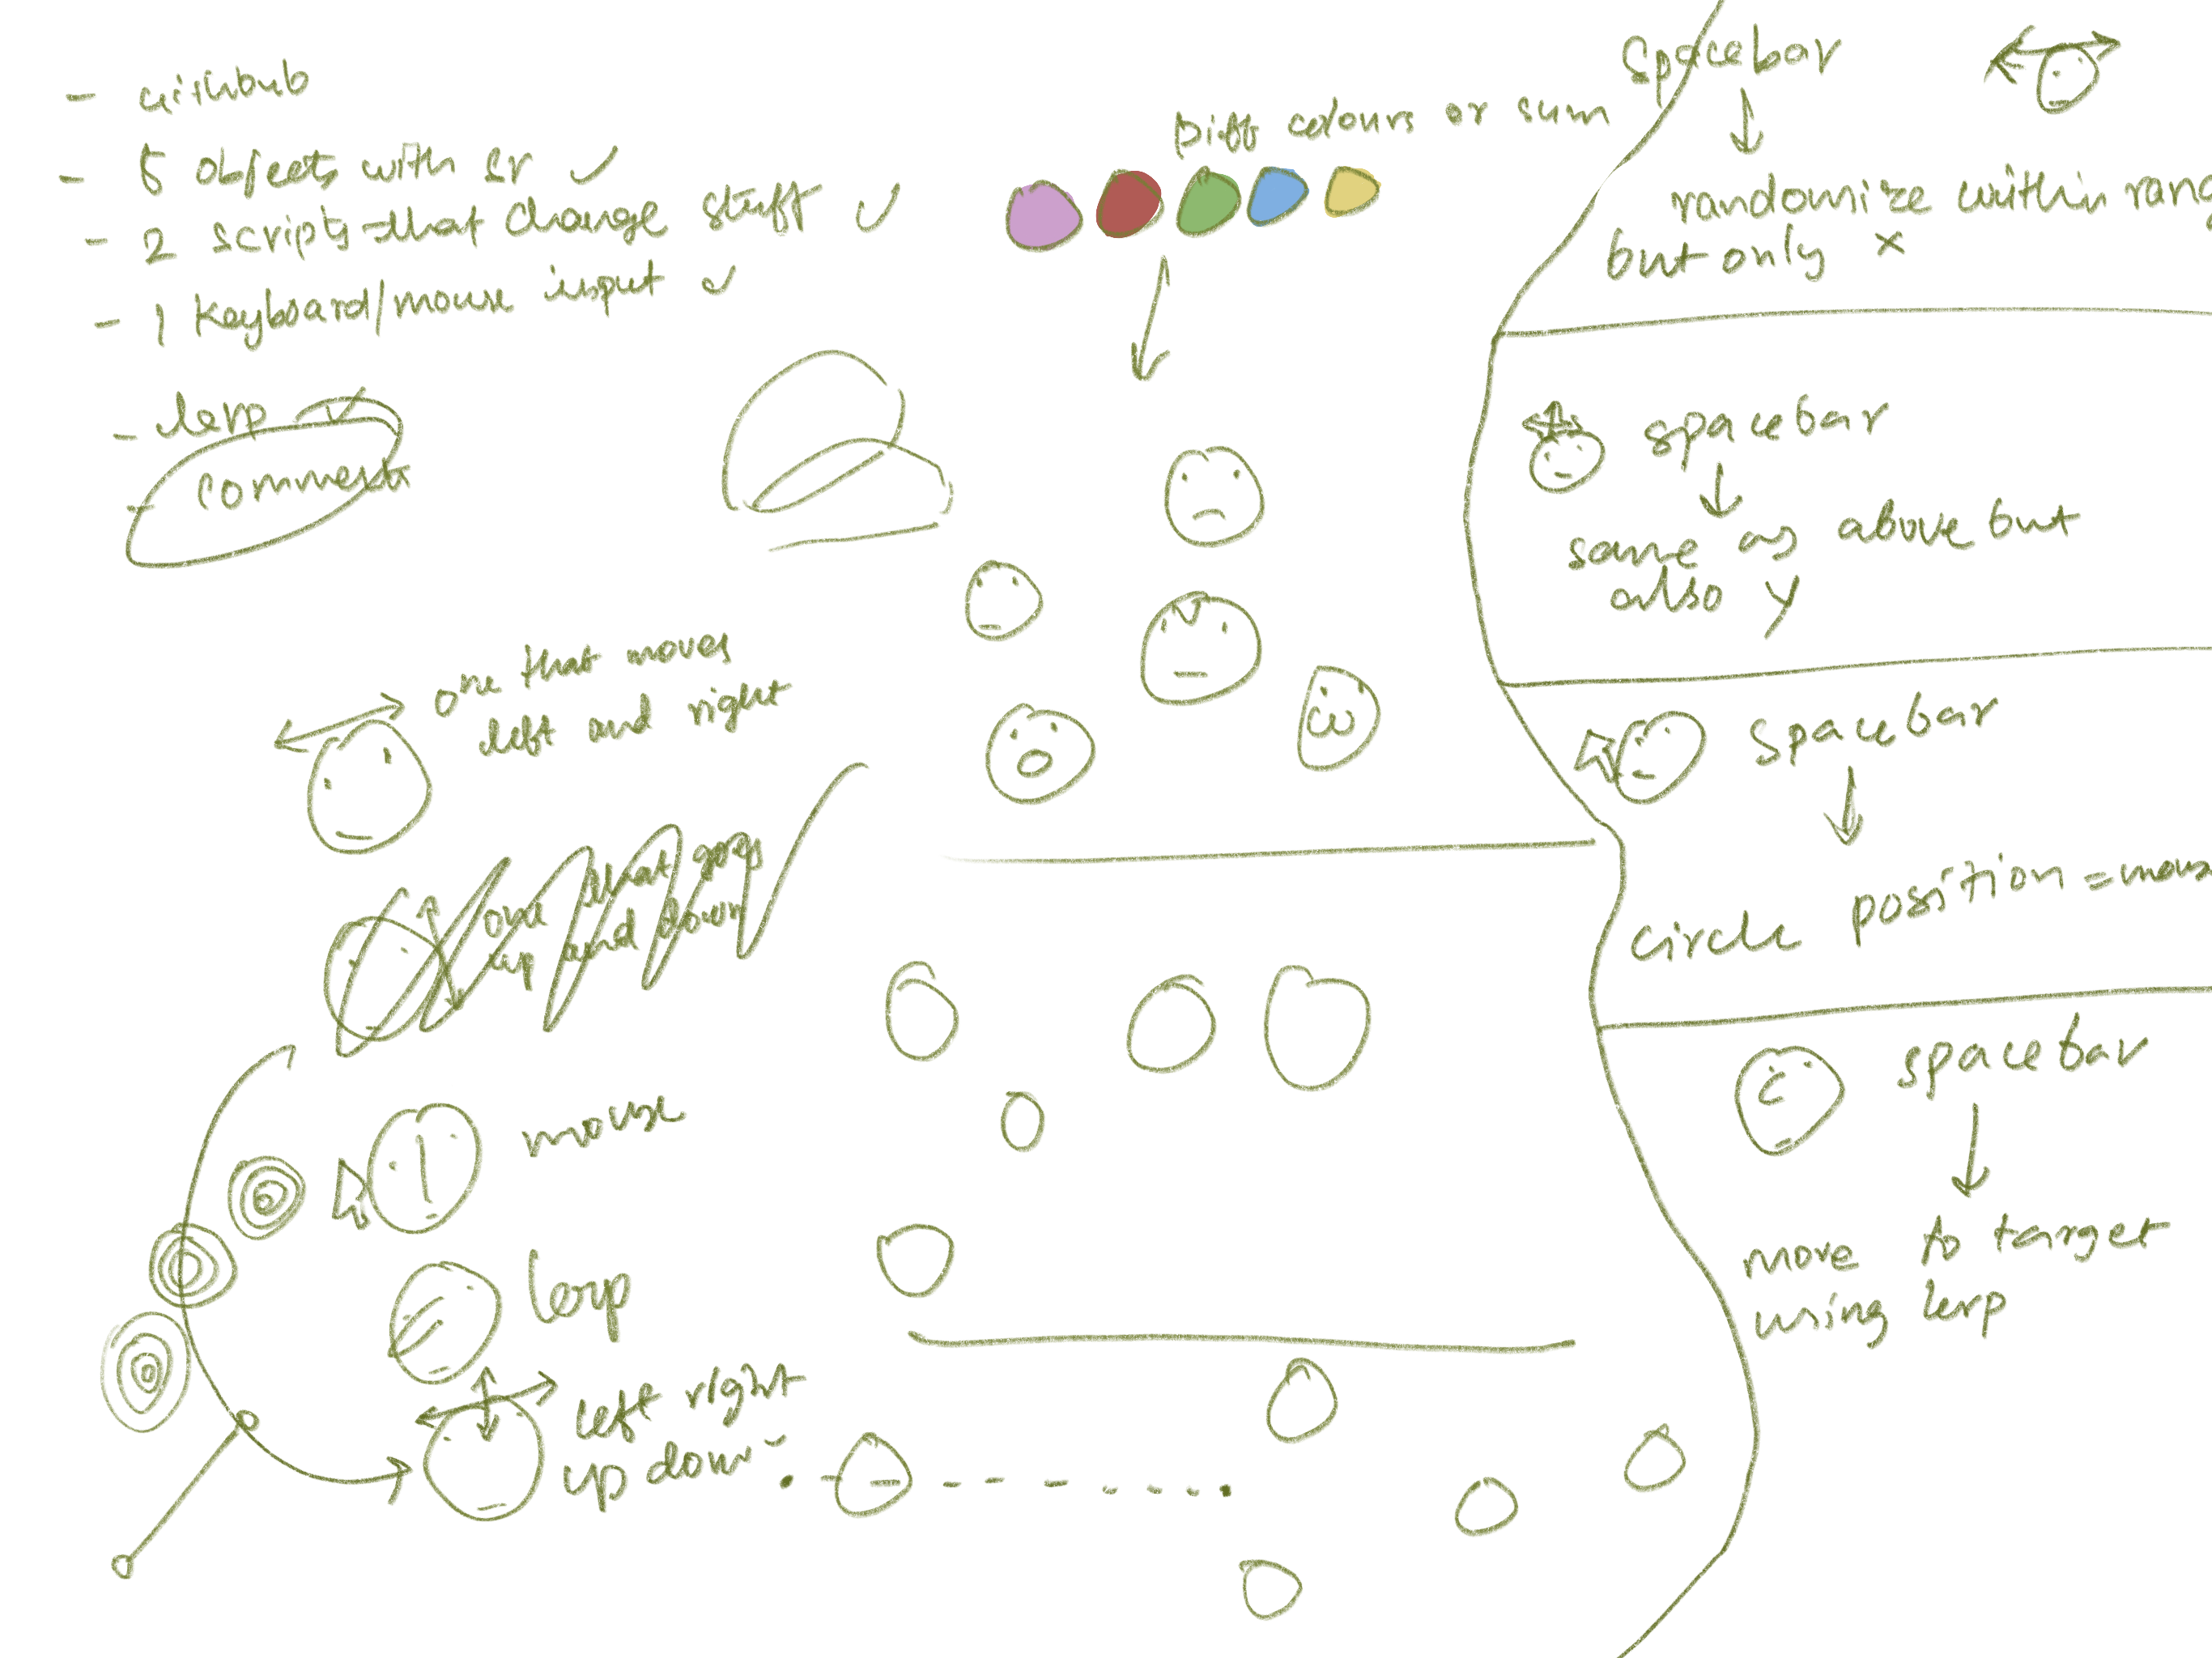 - github
- 5 objects with sr ✓
- 2 scripts that change stuff ✓
- 1 keyboard/mouse input ✓
- lerp ✓
- comments
Diff colours or sum
one that moves
left and right
one that goes
up and down
mouse
lerp
left right
up down
Spacebar
randomize within rang
but only x
spacebar
same as above but
also y
spacebar
circle position = mous
spacebar
move to target
using lerp